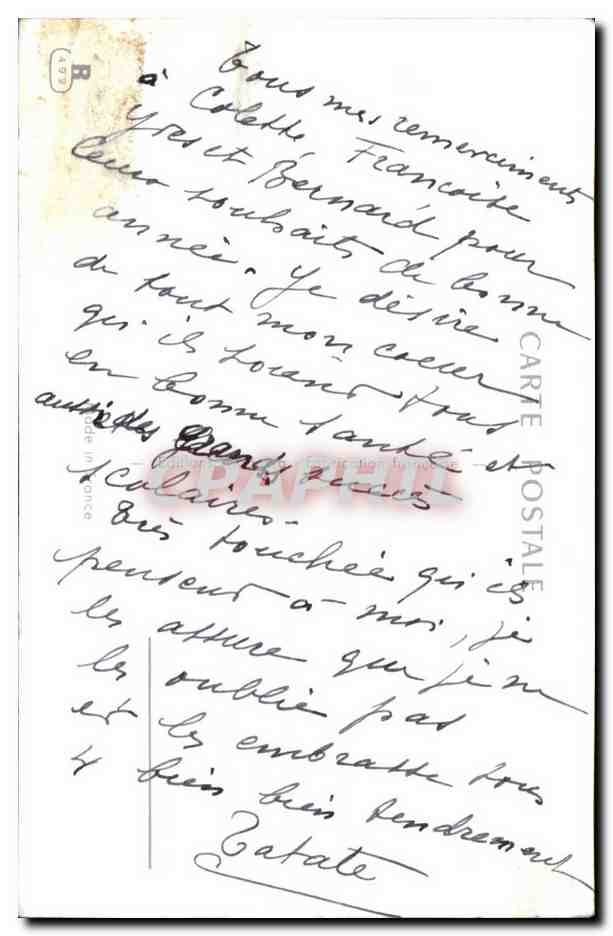 Tous mes remerciements
à Colette, Françoise
Yves et Bernard pour
leurs souhaits de bonne
année. Je désire
de tout mon coeur
qu'ils soient tous
en bonne santé et
aussi des grands succès
scolaires.
Très touchée qu'ils
pensent à moi, je
les assure que je ne
les oublie pas
et les embrasse tous
4 bien bien tendrement
Tatate
CARTE POSTALE
Fabrication française
Made in France
CPAPHIL
R
499